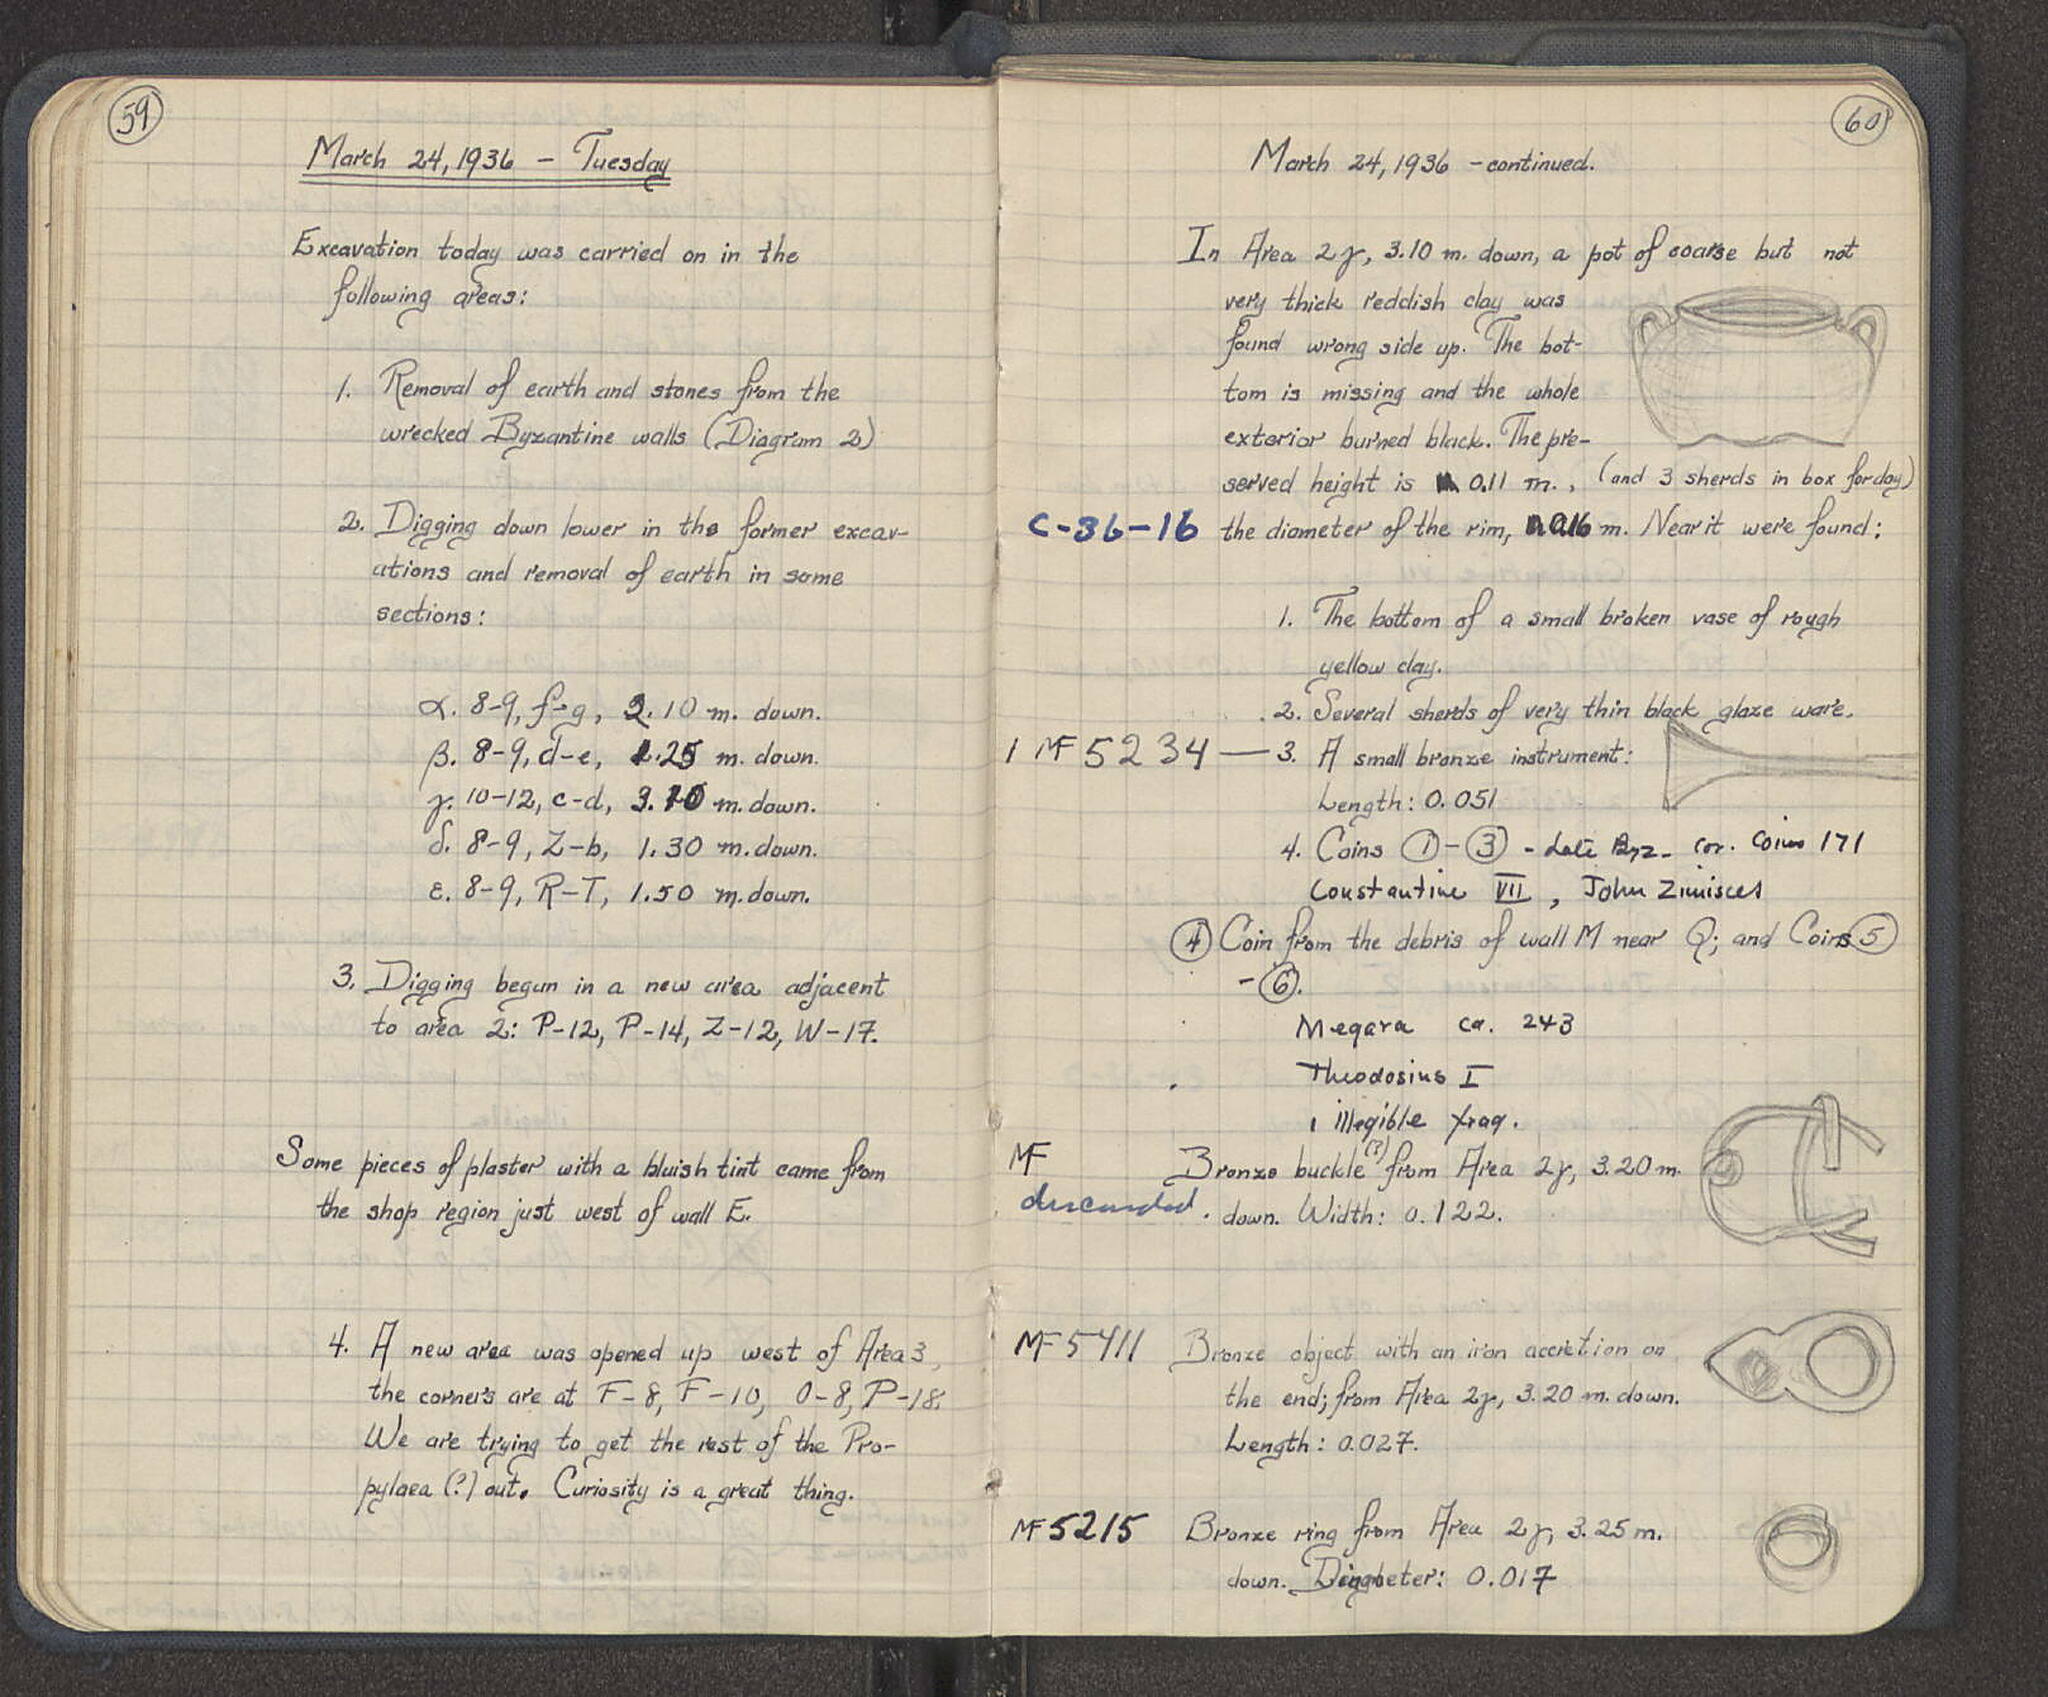 59
March 24, 1936 – Tuesday
Excavation today was carried on in the
following areas:
1. Removal of earth and stones from the
wrecked Byzantine walls (Diagram 2)
2. Digging down lower in the former excav-
ations and removal of earth in some
sections:
α. 8-9, f-g, 2.10 m. down.
β. 8-9, d-e, 1.25 m. down.
γ. 10-12, c-d, 3.10 m. down.
δ. 8-9, Z-b, 1.30 m. down.
ε. 8-9, R-T, 1.50 m. down.
3. Digging begun in a new area adjacent
to area 2: P-12, P-14, Z-12, W-17.
Some pieces of plaster with a bluish tint came from
the shop region just west of wall E.
4. A new area was opened up west of Area 3,
the corners are at F-8, F-10, O-8, P-18.
We are trying to get the rest of the Pro-
pylaea (?) out. Curiosity is a great thing.
60
March 24, 1936 – continued.
In Area 2γ, 3.10 m. down, a pot of coarse but not
very thick reddish clay was
found wrong side up. The bot-
tom is missing and the whole
exterior burned black. The pre-
served height is 0.11 m., (and 3 sherds in box for day)
C-36-16 the diameter of the rim, 0.16 m. Near it were found:
1. The bottom of a small broken vase of rough
yellow clay.
2. Several sherds of very thin black glaze ware.
1 MF 5234 — 3. A small bronze instrument:
Length: 0.051
4. Coins ① - ③ - Late Byz- cor. Coins 171
Constantine VII, John Zimisces
④ Coin from the debris of wall M near Q; and Coins ⑤
- ⑥.
Megara ca. 243
Theodosius I
1 illegible frag.
MF Bronze buckle (?) from Area 2γ, 3.20 m.
discarded. down. Width: 0.122.
MF 5411 Bronze object with an iron accretion on
the end; from Area 2γ, 3.20 m. down.
Length: 0.027.
MF 5215 Bronze ring from Area 2γ, 3.25 m.
down. Diameter: 0.017